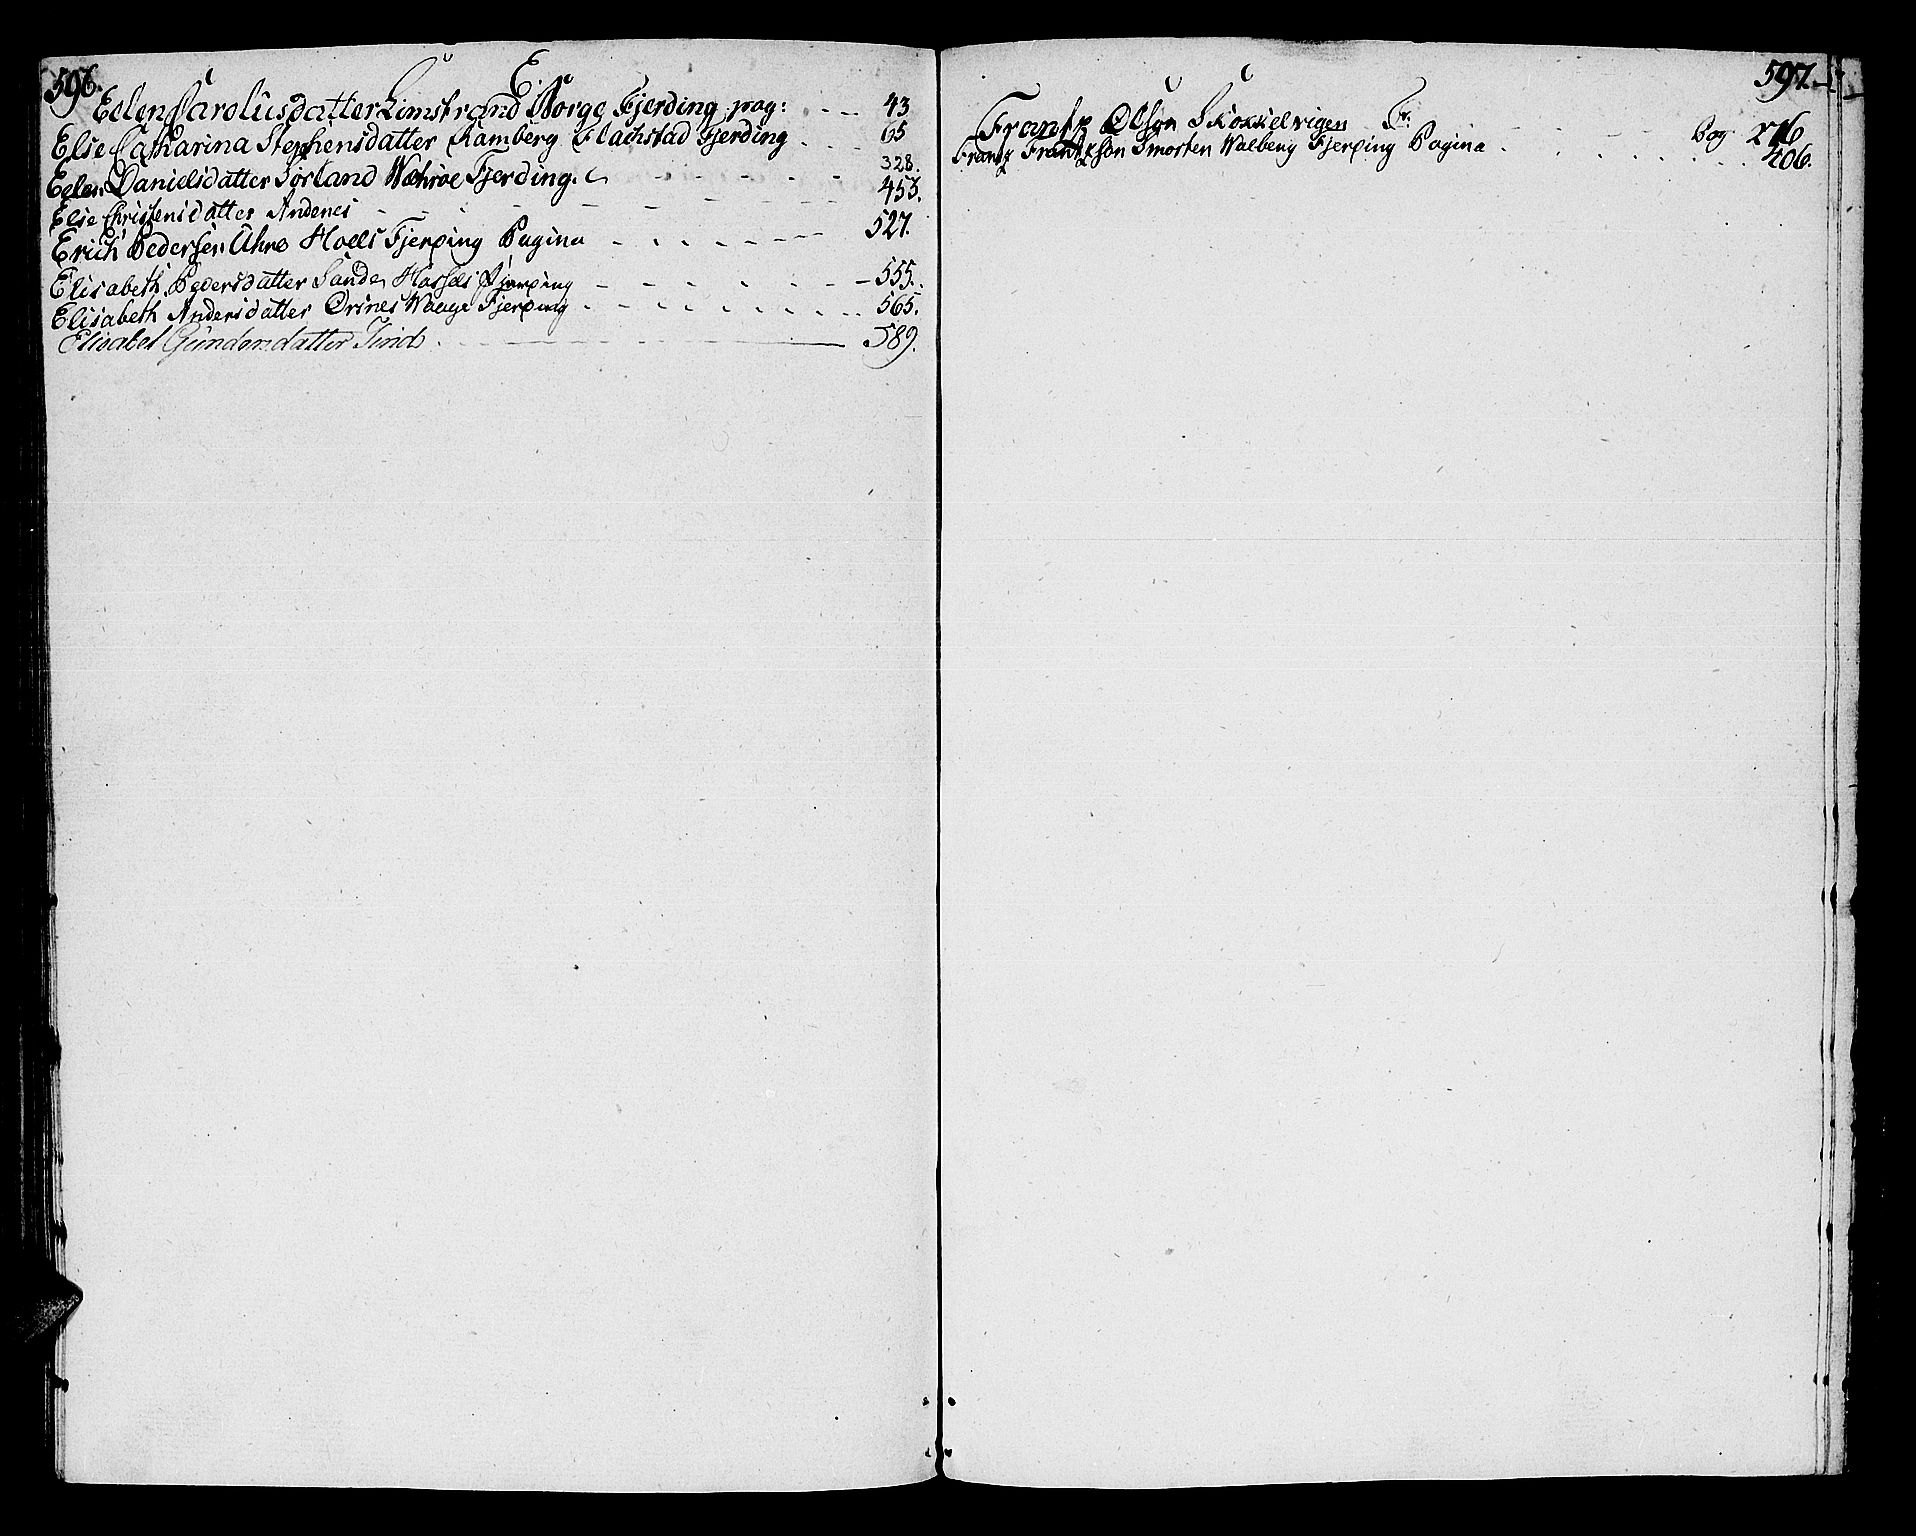 596.
E.
Eelen Carolusdatter Limstrand Borge Fjerding pag: 43
Else Catharina Stephensdatter Ramberg Flachstad Fjerding 65
Eelen Danielsdatter Sørland Wæhrøe Fjerding. 328.
Else Christensdatter Andenes 453.
Erich Pedersen Åhre Hoels Fjerding Pagina 527.
Elisabeth Pedersdatter Sande Hassels Fjerping 555.
Elisabeth Andersdatter Ørsnes Waage Fjerping 565.
Elisabet Gundersdatter Tind 589.
597.
F.
Frantz Olsøn Skokkelvigen Pag 276
Frantz Frantzsøn Smorten Walberg Fjerping Pagina 406.